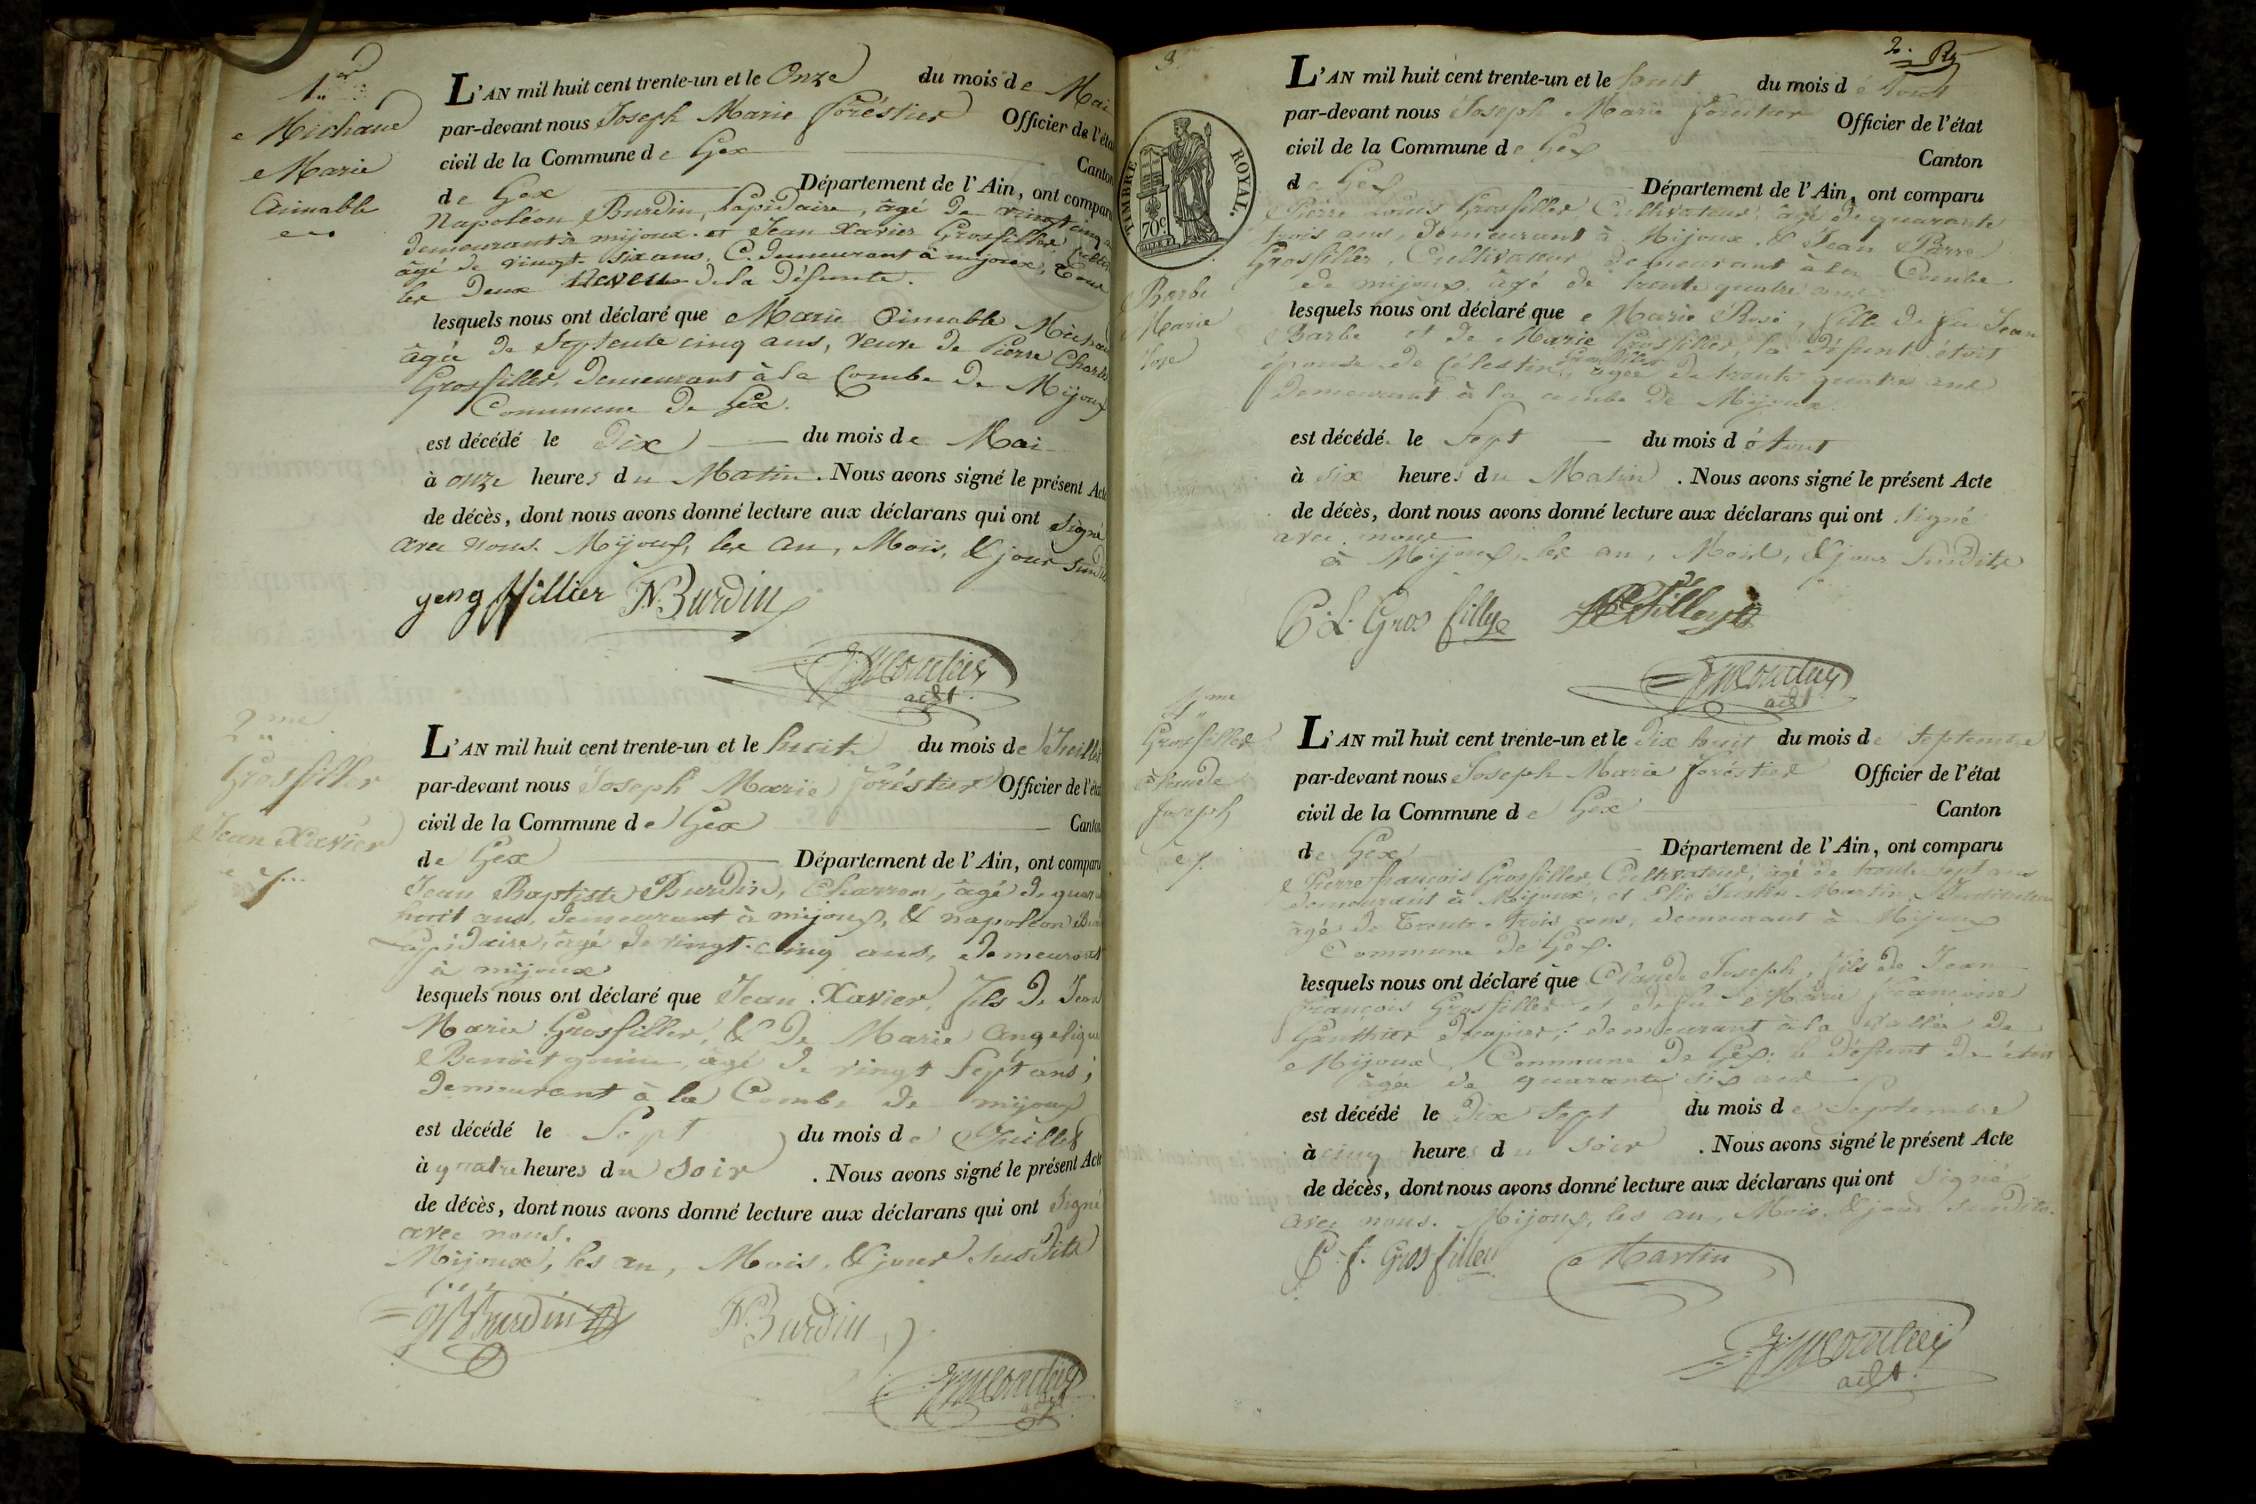 1er
Michaud
Marie
Aimable
L'AN mil huit cent trente-un et le Onze du mois de Mai
par-devant nous Joseph Marie Foréstier Officier de l'éta
civil de la Commune de Gex Canton
de Gex Département de l'Ain, ont comparu
Napoléon Burdin, Lapidaire, âgé de vingt cinq
demeurant à mijoux. et Jean Xavier Grosfiller
âgé de vingt six ans, C. demeurant à mijoux, Tous
les deux neveu de la défunte.
lesquels nous ont déclaré que Marie Aimable Michau
âgée de Septente cinq ans, veuve de Pierre Charles
Grosfiller, demeurant à la Combe de Mijoux
Commune de Gex.
est décédé le Dix du mois de Mai
à onze heures du Matin. Nous avons signé le présent Acte
de décès, dont nous avons donné lecture aux déclarans qui ont signé
avec nous. Mijoux, les an, Mois, & jour susdits
N. Burdin
adjt
2me
Grosfiller
Jean Xavier
L'AN mil huit cent trente-un et le huit du mois de Juillet
par-devant nous Joseph Marie Foréstier Officier de l'éta
civil de la Commune de Gex Canton
de Gex Département de l'Ain, ont comparu
Jean Baptiste Burdin, Charron, âgé de quar
huit ans, demeurant à mijoux, & napoléon Bur
Lapidaire, âgé de vingt-cinq ans, demeurant
à mijoux
lesquels nous ont déclaré que Jean Xavier, fils de Jean
Marie Grosfiller, & de Marie Angelique
Benoit gonin, agé de vingt Sept ans,
demeurant à la Combe de mijoux
est décédé le Sept du mois de Juillet
à quatre heures du soir. Nous avons signé le présent Acte
de décès, dont nous avons donné lecture aux déclarans qui ont signé
avec nous.
Mijoux, les an, Mois, & jour susdits
Burdin
N. Burdin
adjt
3
2.
TIMBRE ROYAL.
70c
Barbe
Marie
Rose
L'AN mil huit cent trente-un et le huit du mois d'Aout
par-devant nous Joseph Marie Foréstier Officier de l'état
civil de la Commune de Gex Canton
de Gex Département de l'Ain, ont comparu
Pierre Louis Grosfiller, Cultivateur, âgé de quarante
trois ans, demeurant à Mijoux, & Jean Pierre
Grosfiller, Cultivateur demeurant à la Combe
de mijoux, âgé de trente quatre ans
lesquels nous ont déclaré que Marie Rose, fille de feu Jean
Barbe et de Marie Grosfiller la défunte étoit
épouse de Célestin Grosfiller, agée de trente quatre ans
demeurant à la combe de Mijoux.
est décédé le Sept du mois d'Aout
à six heures du Matin. Nous avons signé le présent Acte
de décès, dont nous avons donné lecture aux déclarans qui ont signé
avec nous
à Mijoux, les an, Mois, & jour susdits
P. L. Gros filly
adjt
4me
Grosfiller
Claude
Joseph
L'AN mil huit cent trente-un et le dix huit du mois de Septembre
par-devant nous Joseph Marie Foréstier Officier de l'état
civil de la Commune de Gex Canton
de Gex Département de l'Ain, ont comparu
Pierre François Grosfiller Cultivateur, agé de trente sept ans
demeurant à Mijoux, et Elie Justin Martin, Instituteur
âgé de trente-trois ans, demeurant à Mijoux
Commune de Gex.
lesquels nous ont déclaré que Claude Joseph, fils de Jean
François Grosfiller et de feu Marie Françoise
Gauthier demeurant à la Vallée de
Mijoux, Commune de Gex: le défunt
âgée de quarante six ans
est décédé le dix sept du mois de Septembre
à cinq heures du soir. Nous avons signé le présent Acte
de décès, dont nous avons donné lecture aux déclarans qui ont signé
avec nous. Mijoux, les an, Mois, & jour susdits.
P. f. Gros filley
Martin
adjt